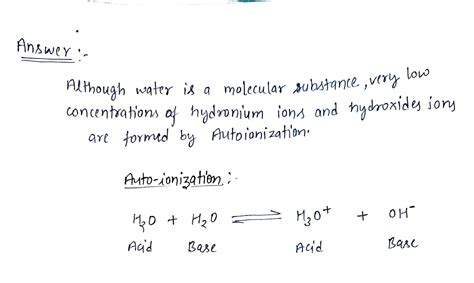 Answer :-
Although water is a molecular substance, very low
concentrations of hydronium ions and hydroxides ions
are formed by Autoionization.
Auto-ionization :-
H₂O + H₂O ⇌ H₃O⁺ + OH⁻
Acid Base Acid Base